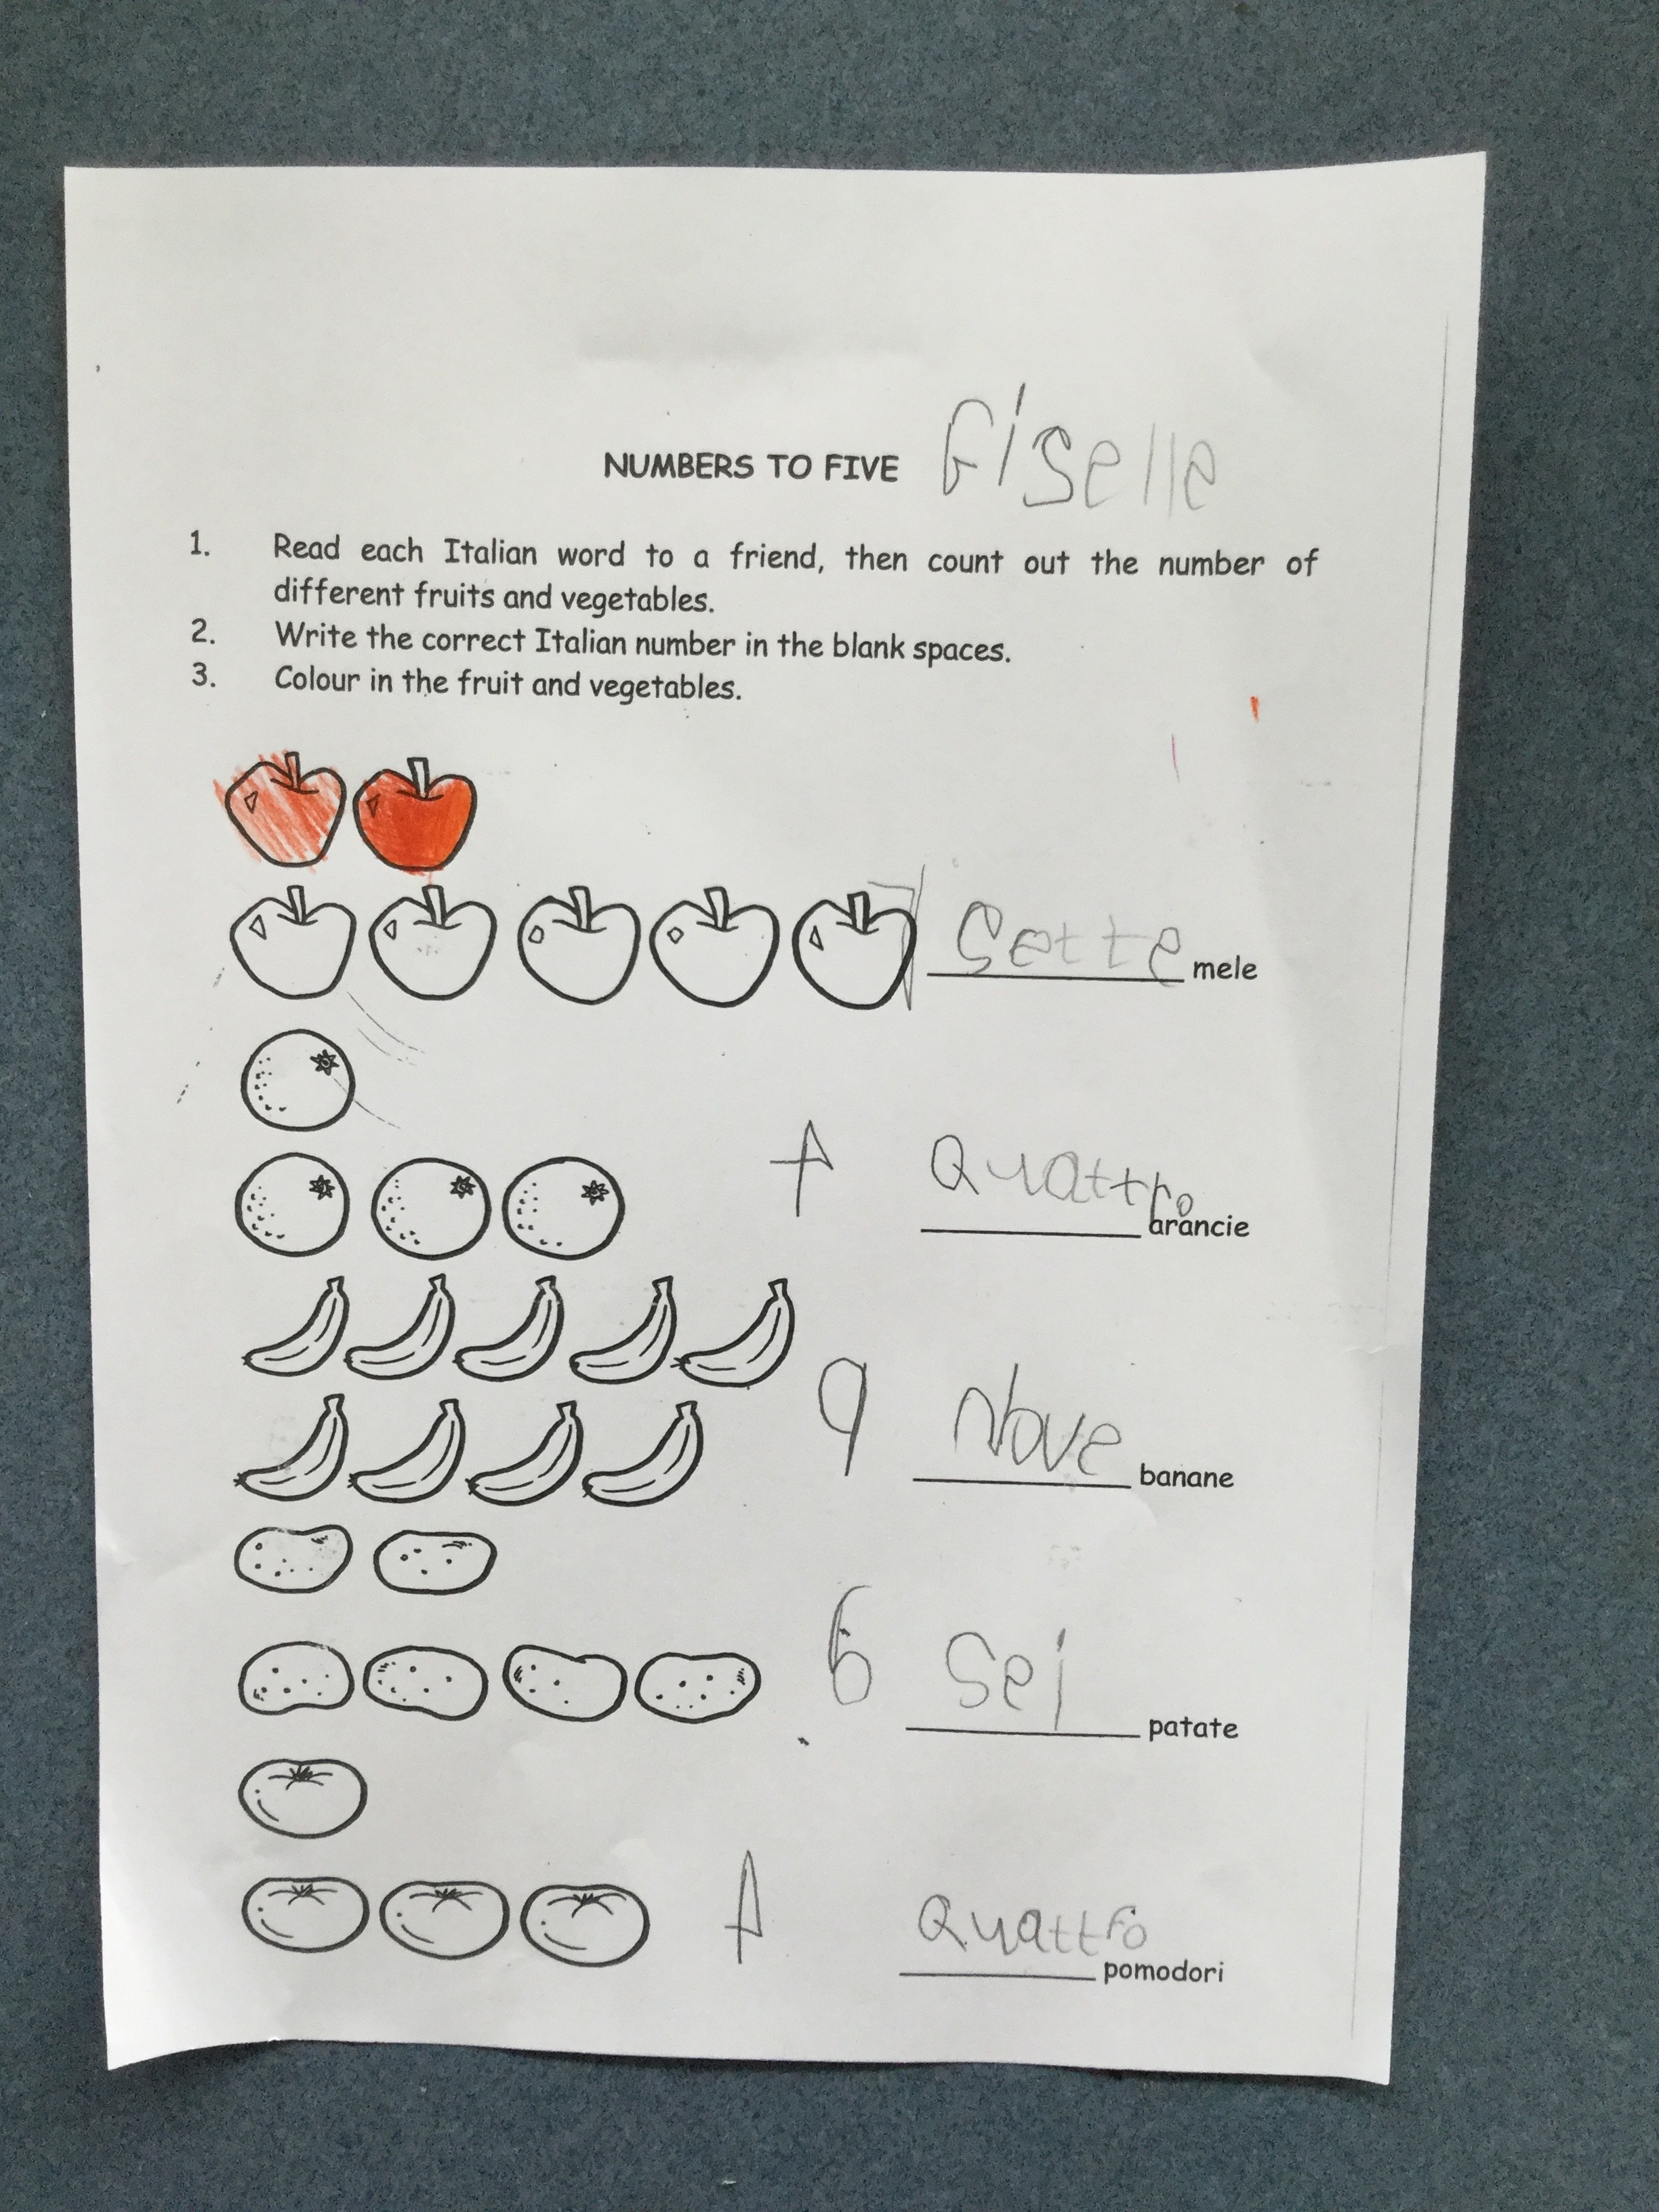 NUMBERS TO FIVE Giselle
1. Read each Italian word to a friend, then count out the number of
different fruits and vegetables.
2. Write the correct Italian number in the blank spaces.
3. Colour in the fruit and vegetables.
7 Sette mele
4 Quattro arancie
9 Nove banane
6 Sei patate
4 Quattro pomodori